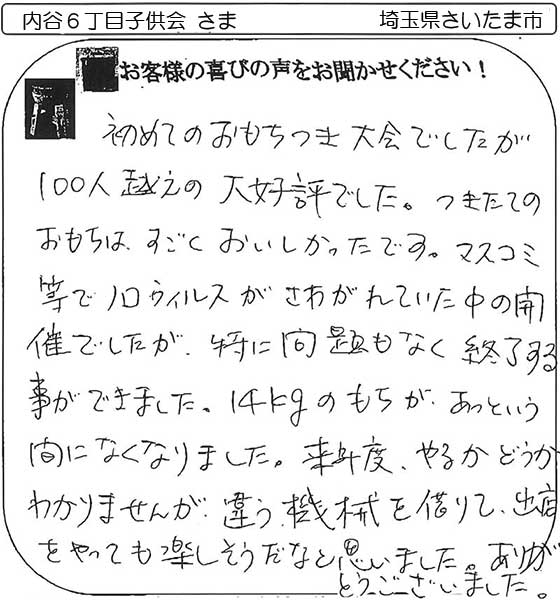 内谷6丁目子供会 さま 埼玉県さいたま市
お客様の喜びの声をお聞かせください！
初めてのおもちつき大会でしたが
100人越えの大好評でした。つきたての
おもちは、すごくおいしかったです。マスコミ
等でノロウィルスがさわがれていた中の開
催でしたが、特に問題もなく終了する
事ができました。14kgのもちが、あっという
間になくなりました。来年度、やるかどうか
わかりませんが、違う機械を借りて、出店
をやっても楽しそうだなと思いました。ありが
とうございました。